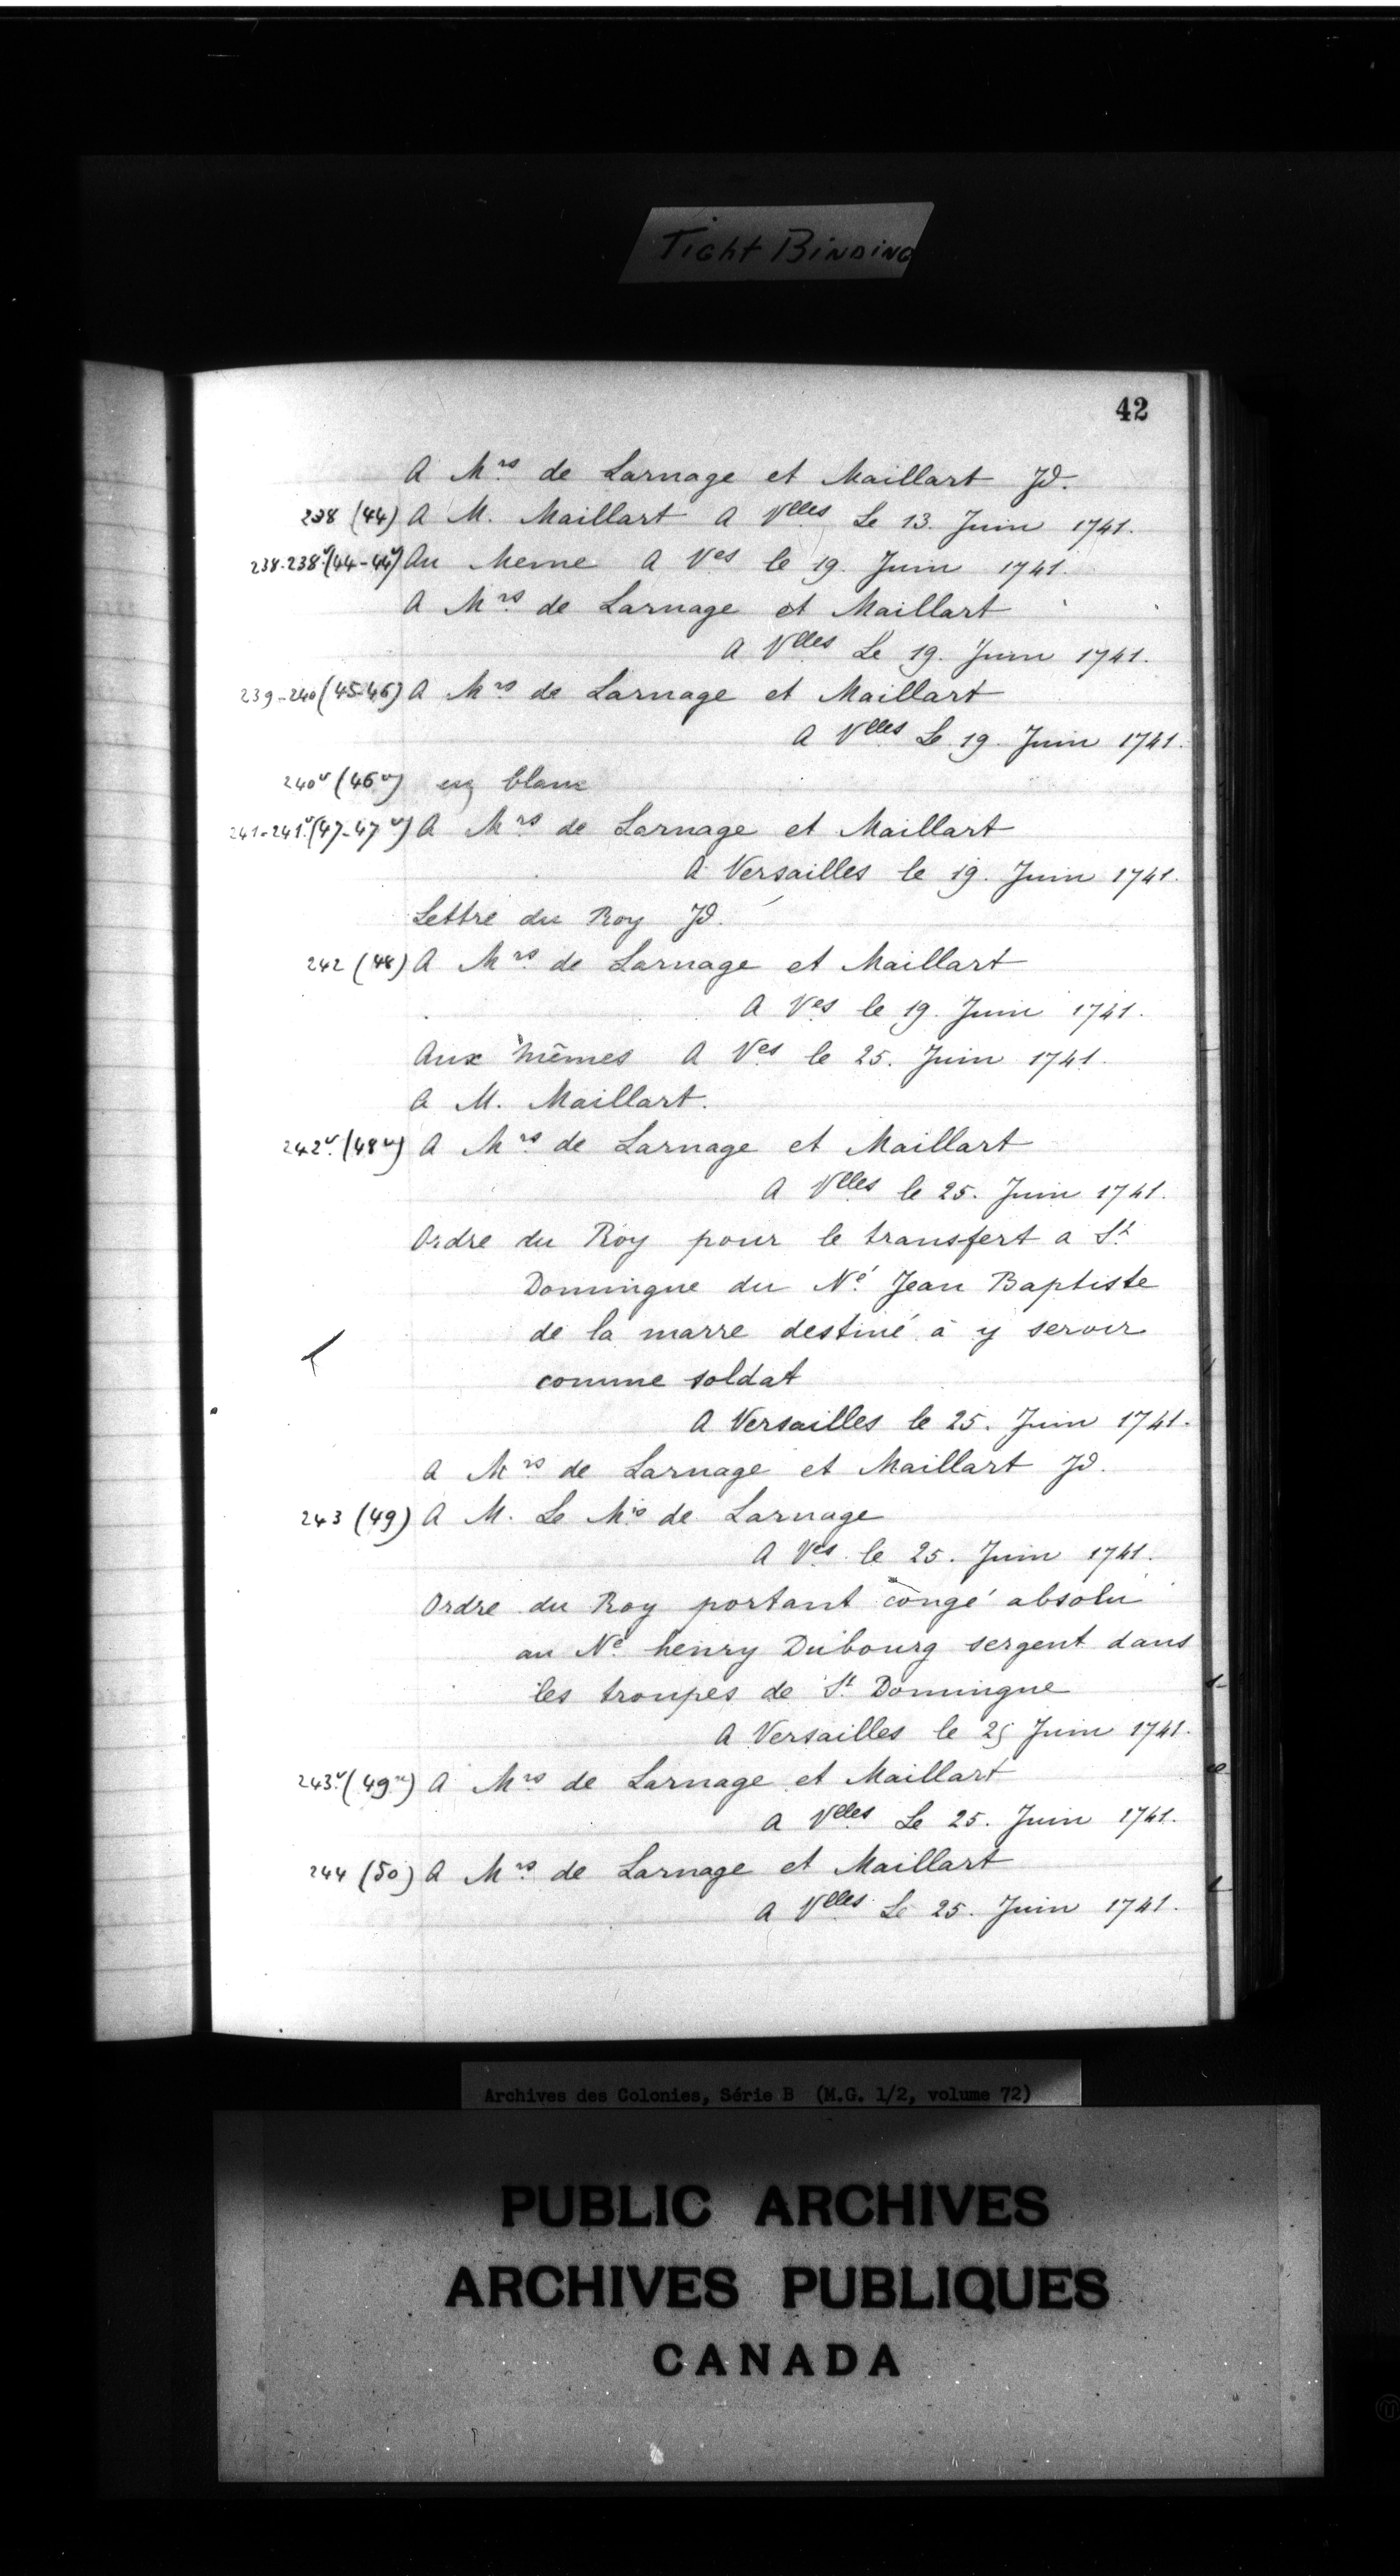 Tight Binding
42
A Mrs de Larnage et Maillart Jd.
238 (44) A M. Maillart A Vlles Le 13. Juin 1741.
238-238v (44-44v) Au Meme A Ves le 19. Juin 1741.
A Mrs de Larnage et Maillart
A Vlles Le 19. Juin 1741.
239-240 (45-46) A Mrs de Larnage et Maillart
A Vlles Le 19. Juin 1741.
240v (46v) en blanc
241-241v (47-47v) A Mrs de Larnage et Maillart
A Versailles le 19. Juin 1741.
Lettre du Roy Jd.
242 (48) A Mrs de Larnage et Maillart
A Ves le 19. Juin 1741.
Aux mêmes A Ves le 25. Juin 1741.
A M. Maillart.
242v (48v) A Mrs de Larnage et Maillart
A Vlles le 25. Juin 1741.
Ordre du Roy pour le transfert a St
Domingue du Né Jean Baptiste
de la marre destiné à y servir
comme soldat
A Versailles le 25. Juin 1741.
A Mrs de Larnage et Maillart Jd.
243 (49) A M. Le Mis de Larnage
A Ves le 25. Juin 1741.
Ordre du Roy portant congé absolu
au Né henry Dubourg sergent dans
les troupes de St Domingue
A Versailles le 25 Juin 1741.
243v (49v) A Mrs de Larnage et Maillart
A Vlles Le 25. Juin 1741.
244 (50) A Mrs de Larnage et Maillart
A Vlles Le 25. Juin 1741.
Archives des Colonies, Série B (M.G. 1/2, volume 72)
PUBLIC ARCHIVES
ARCHIVES PUBLIQUES
CANADA